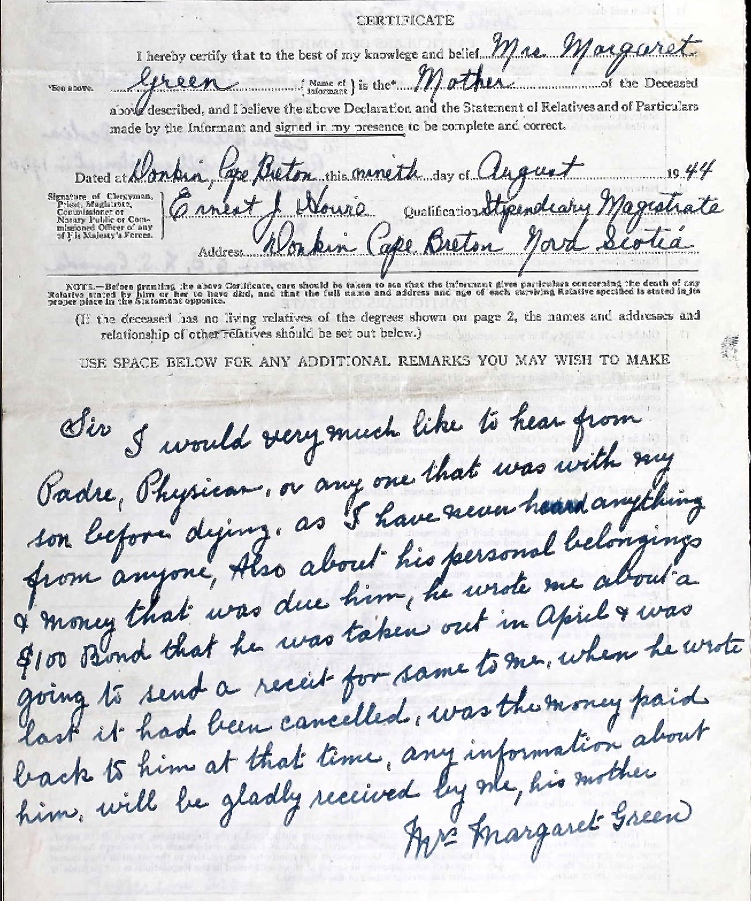 CERTIFICATE
I hereby certify that to the best of my knowlege and belief Mrs. Margaret
*See above. Green { Name of Informant } is the* Mother of the Deceased
above described, and I believe the above Declaration and the Statement of Relatives and of Particulars
made by the Informant and signed in my presence to be complete and correct.
Dated at Donkin, Cape Breton this nineth day of August 1944
Signature of Clergyman, Priest, Magistrate, Commissioner or Notary Public or Commissioned Officer of any of His Majesty's Forces. } Ernest J Howie Qualification Stipendiary Magistrate
Address Donkin Cape Breton Nova Scotia
NOTE.—Before granting the above Certificate, care should be taken to see that the informant gives particulars concerning the death of any
Relative stated by him or her to have died, and that the full name and address and age of each surviving Relative specified is stated in its
proper place in the Statement opposite.
(If the deceased has no living relatives of the degrees shown on page 2, the names and addresses and
relationship of other relatives should be set out below.)
USE SPACE BELOW FOR ANY ADDITIONAL REMARKS YOU MAY WISH TO MAKE
Sir I would very much like to hear from
Padre, Physican, or any one that was with my
son before dying, as I have never heard anything
from anyone, Also about his personal belongings
& money that was due him, he wrote me about a
$100 Bond that he was taken out in April & was
going to send a receit for same to me, when he wrote
last it had been cancelled, was the money paid
back to him at that time, any information about
him, will be gladly received by me, his mother
Mrs Margaret Green